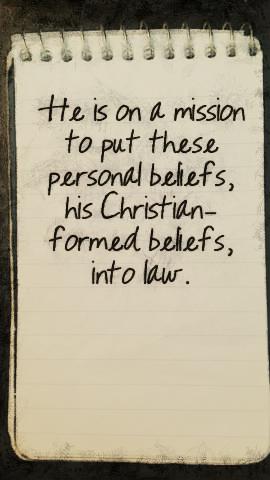 He is on a mission
to put these
personal beliefs,
his Christian-
formed beliefs,
into law.